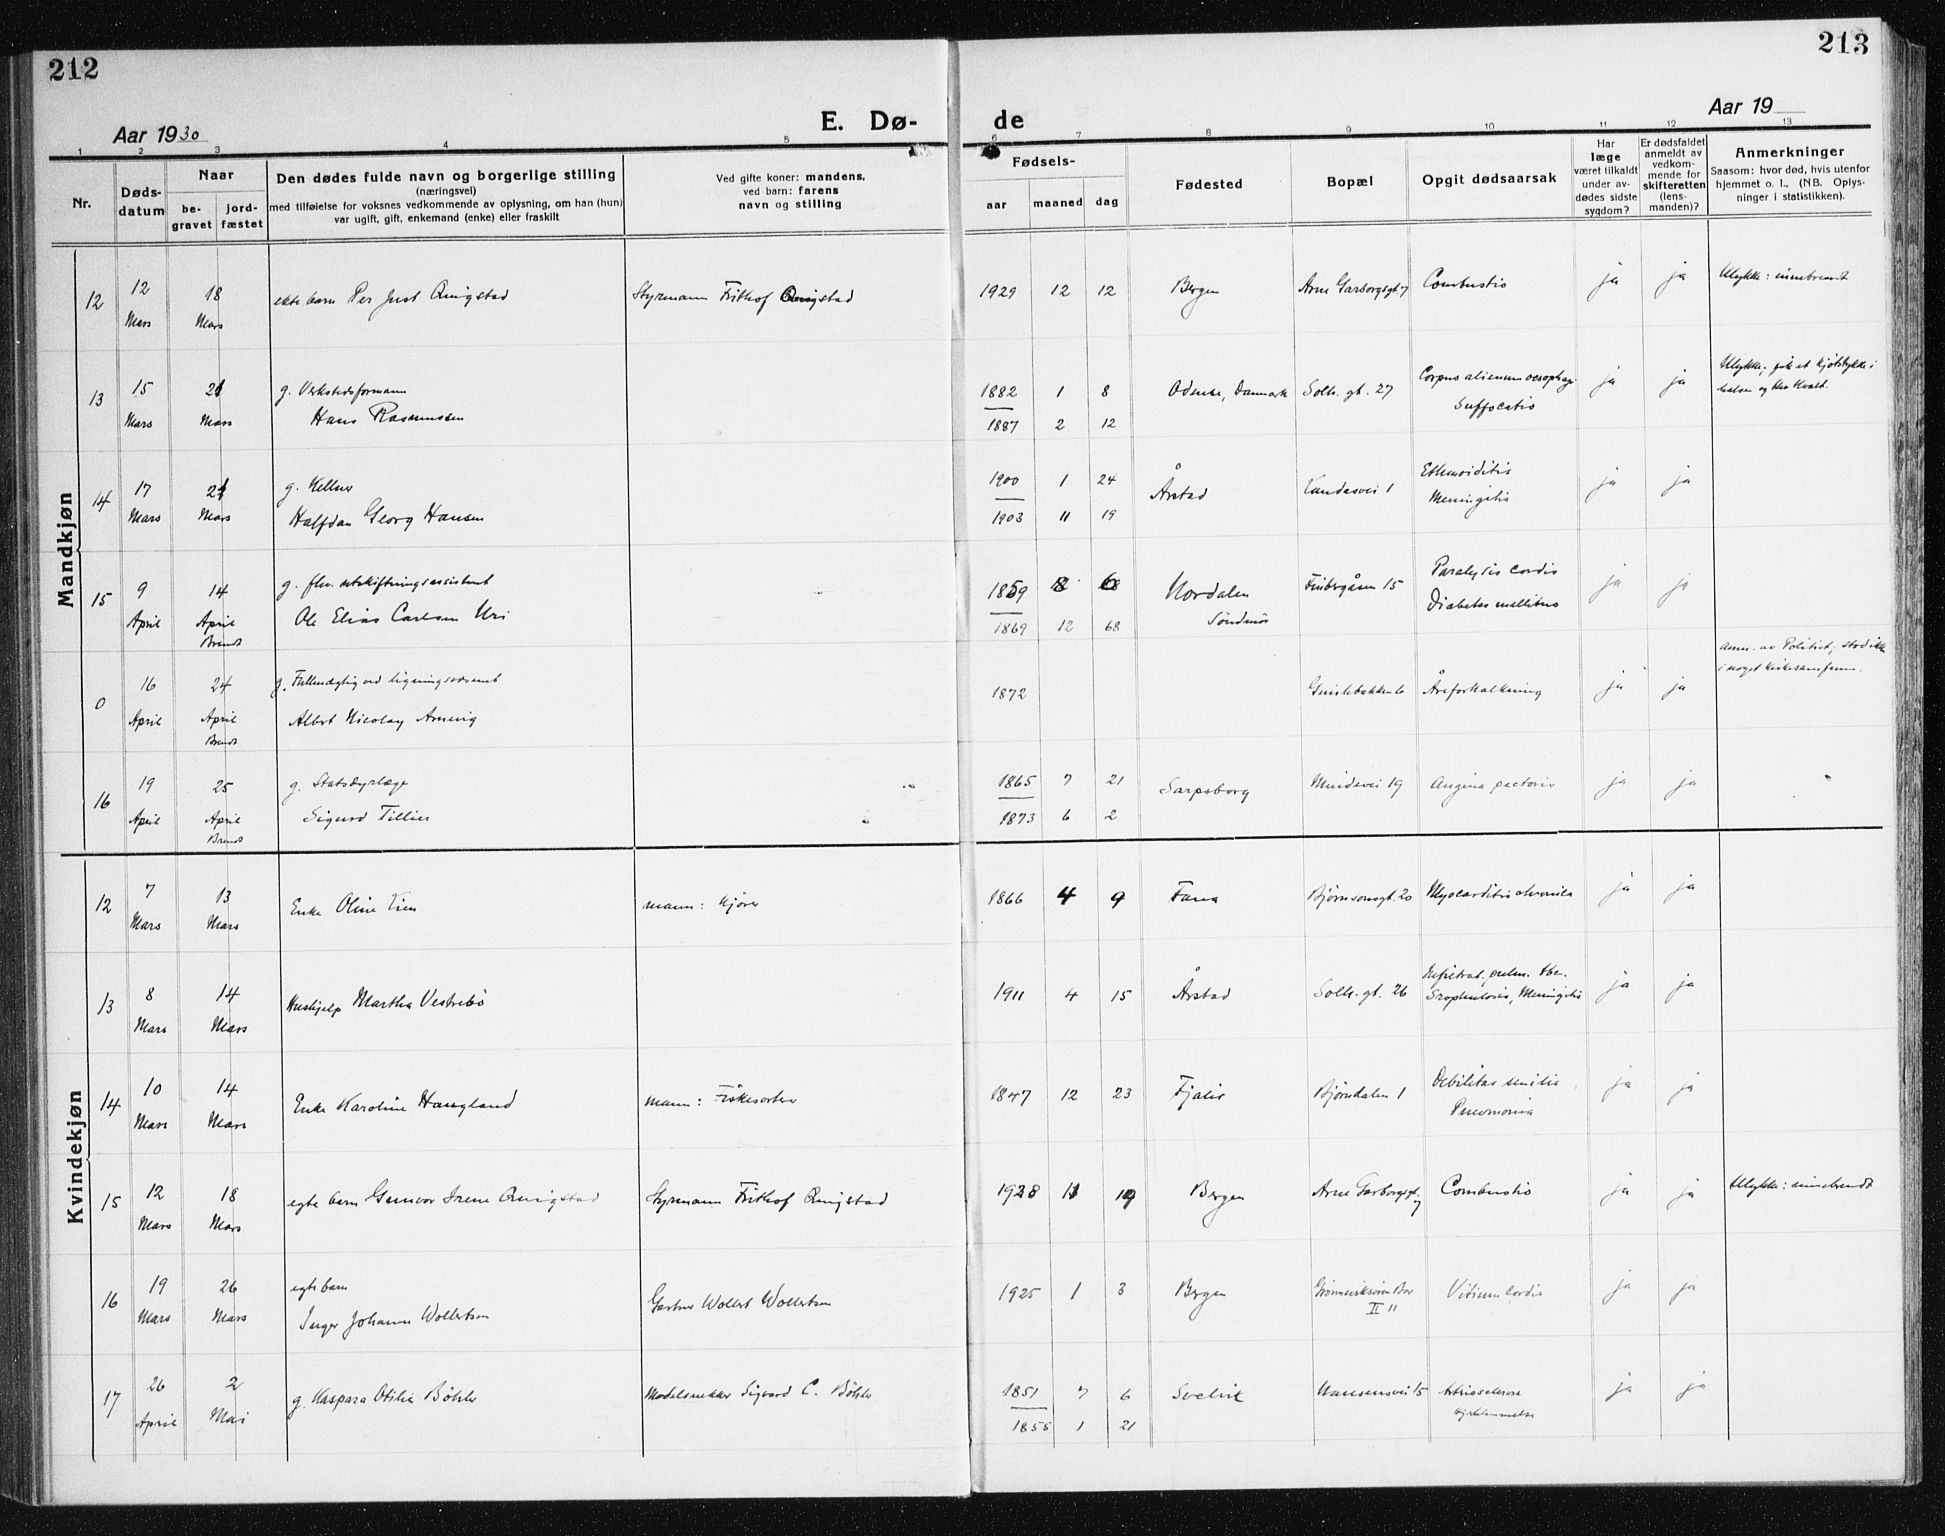 212
213
Aar 1930
E. Dø-
de
Aar 19
1 2 3 4 5 6 7 8 9 10 11 12 13
Nr.
Døds-
datum
Naar
be-
gravet
jord-
fæstet
Den dødes fulde navn og borgerlige stilling
(næringsvei)
med tilføielse for voksnes vedkommende av oplysning, om han (hun)
var ugift, gift, enkemand (enke) eller fraskilt
Ved gifte koner: mandens,
ved barn: farens
navn og stilling
Fødsels-
aar maaned dag
Fødested
Bopæl
Opgit dødsaarsak
Har
læge
været tilkaldt
under av-
dødes sidste
sygdom?
Er dødsfaldet
anmeldt av
vedkom-
mende for
skifteretten
(lens-
manden)?
Anmerkninger
Saasom: hvor død, hvis utenfor
hjemmet o. l., (NB. Oplys-
ninger i statistikken).
Mandkjøn
12 12 18 ekte barn Per Just Qvigstad Styrmann Frithof Qvigstad 1929 12 12 Bergen Arne Garborgsgt. 7 Combustio ja ja Ulykke: innebrendt
Mars Mars
13 15 21 g. Verkstedsformann 1882 1 8 Odense, Danmark Solh. gt. 27 Corpus alienum oesophagi ja ja Ulykke, fik et kjøtstykke i
Mars Mars Hans Rasmussen 1887 2 12 Suffocatio halsen og blev kvalt.
14 17 21 g. Kellner 1900 1 24 Årstad Landåsvei 1 Ethmoiditis ja ja
Mars Mars Halfdan Georg Hansen 1903 11 19 Meningitis
15 9 14 g. fhv. utskiftningsassistent 1859 8 Nordalen Finbergåsen 15 Paralysis cordis ja ja
April April Ole Elias Carlsen Uri 1869 12 68 Søndmør Diabetes mellitus
Brendt
0 16 24 g. Fullmægtig ved ligningsvæsenet 1872 Åreforkalkning ja ja Anm. av Politiet, stod ikke
April April Albert Nicolay i noget kirkesamfunn.
Brendt
16 19 25 g. Statsdyrlæge 1865 7 21 Sarpsborg Mindevei 19 Angina pectoris ja ja
April April Sigurd Tillier 1873 6 2
Brendt
Kvindekjøn
12 7 13 Enke Oline Lien mann: Kjører 1866 4 9 Fana Bjørnsonsgt. 20 Myocarditis chronica ja ja
Mars Mars
13 8 14 Hushjelp Martha Vestrebø 1911 4 15 Årstad Solh. gt. 26 Infiltrat. pulm. tbc. ja ja
Mars Mars Scrophulosis, Meningitis
14 10 14 Enke Karoline Haugland mann: Fiskesorterer 1847 12 23 Fjaler Bjørndalen 1 Debilitas senilis ja ja
Mars Mars Pneumonia
15 12 18 egte barn Gunvor Irene Qvigstad Styrmann Frithof Qvigstad 1928 11 19 Bergen Arne Garborgsgt. 7 Combustio ja ja Ulykke: innebrendt
Mars Mars
16 19 26 egte barn 1925 1 3 Bergen Vitium cordis ja ja
Mars Mars Inger Johanne Wollertsen Gartner Wollert Wollertsen II 11
17 26 2 g. Kaspara Otilie Bøhler Modelsnekker Sigvard C. Bøhler 1851 7 6 Svelvik Nansensvei 15 Arteriosclerose ja ja
April Mai 1855 1 21 Hjertelammelse